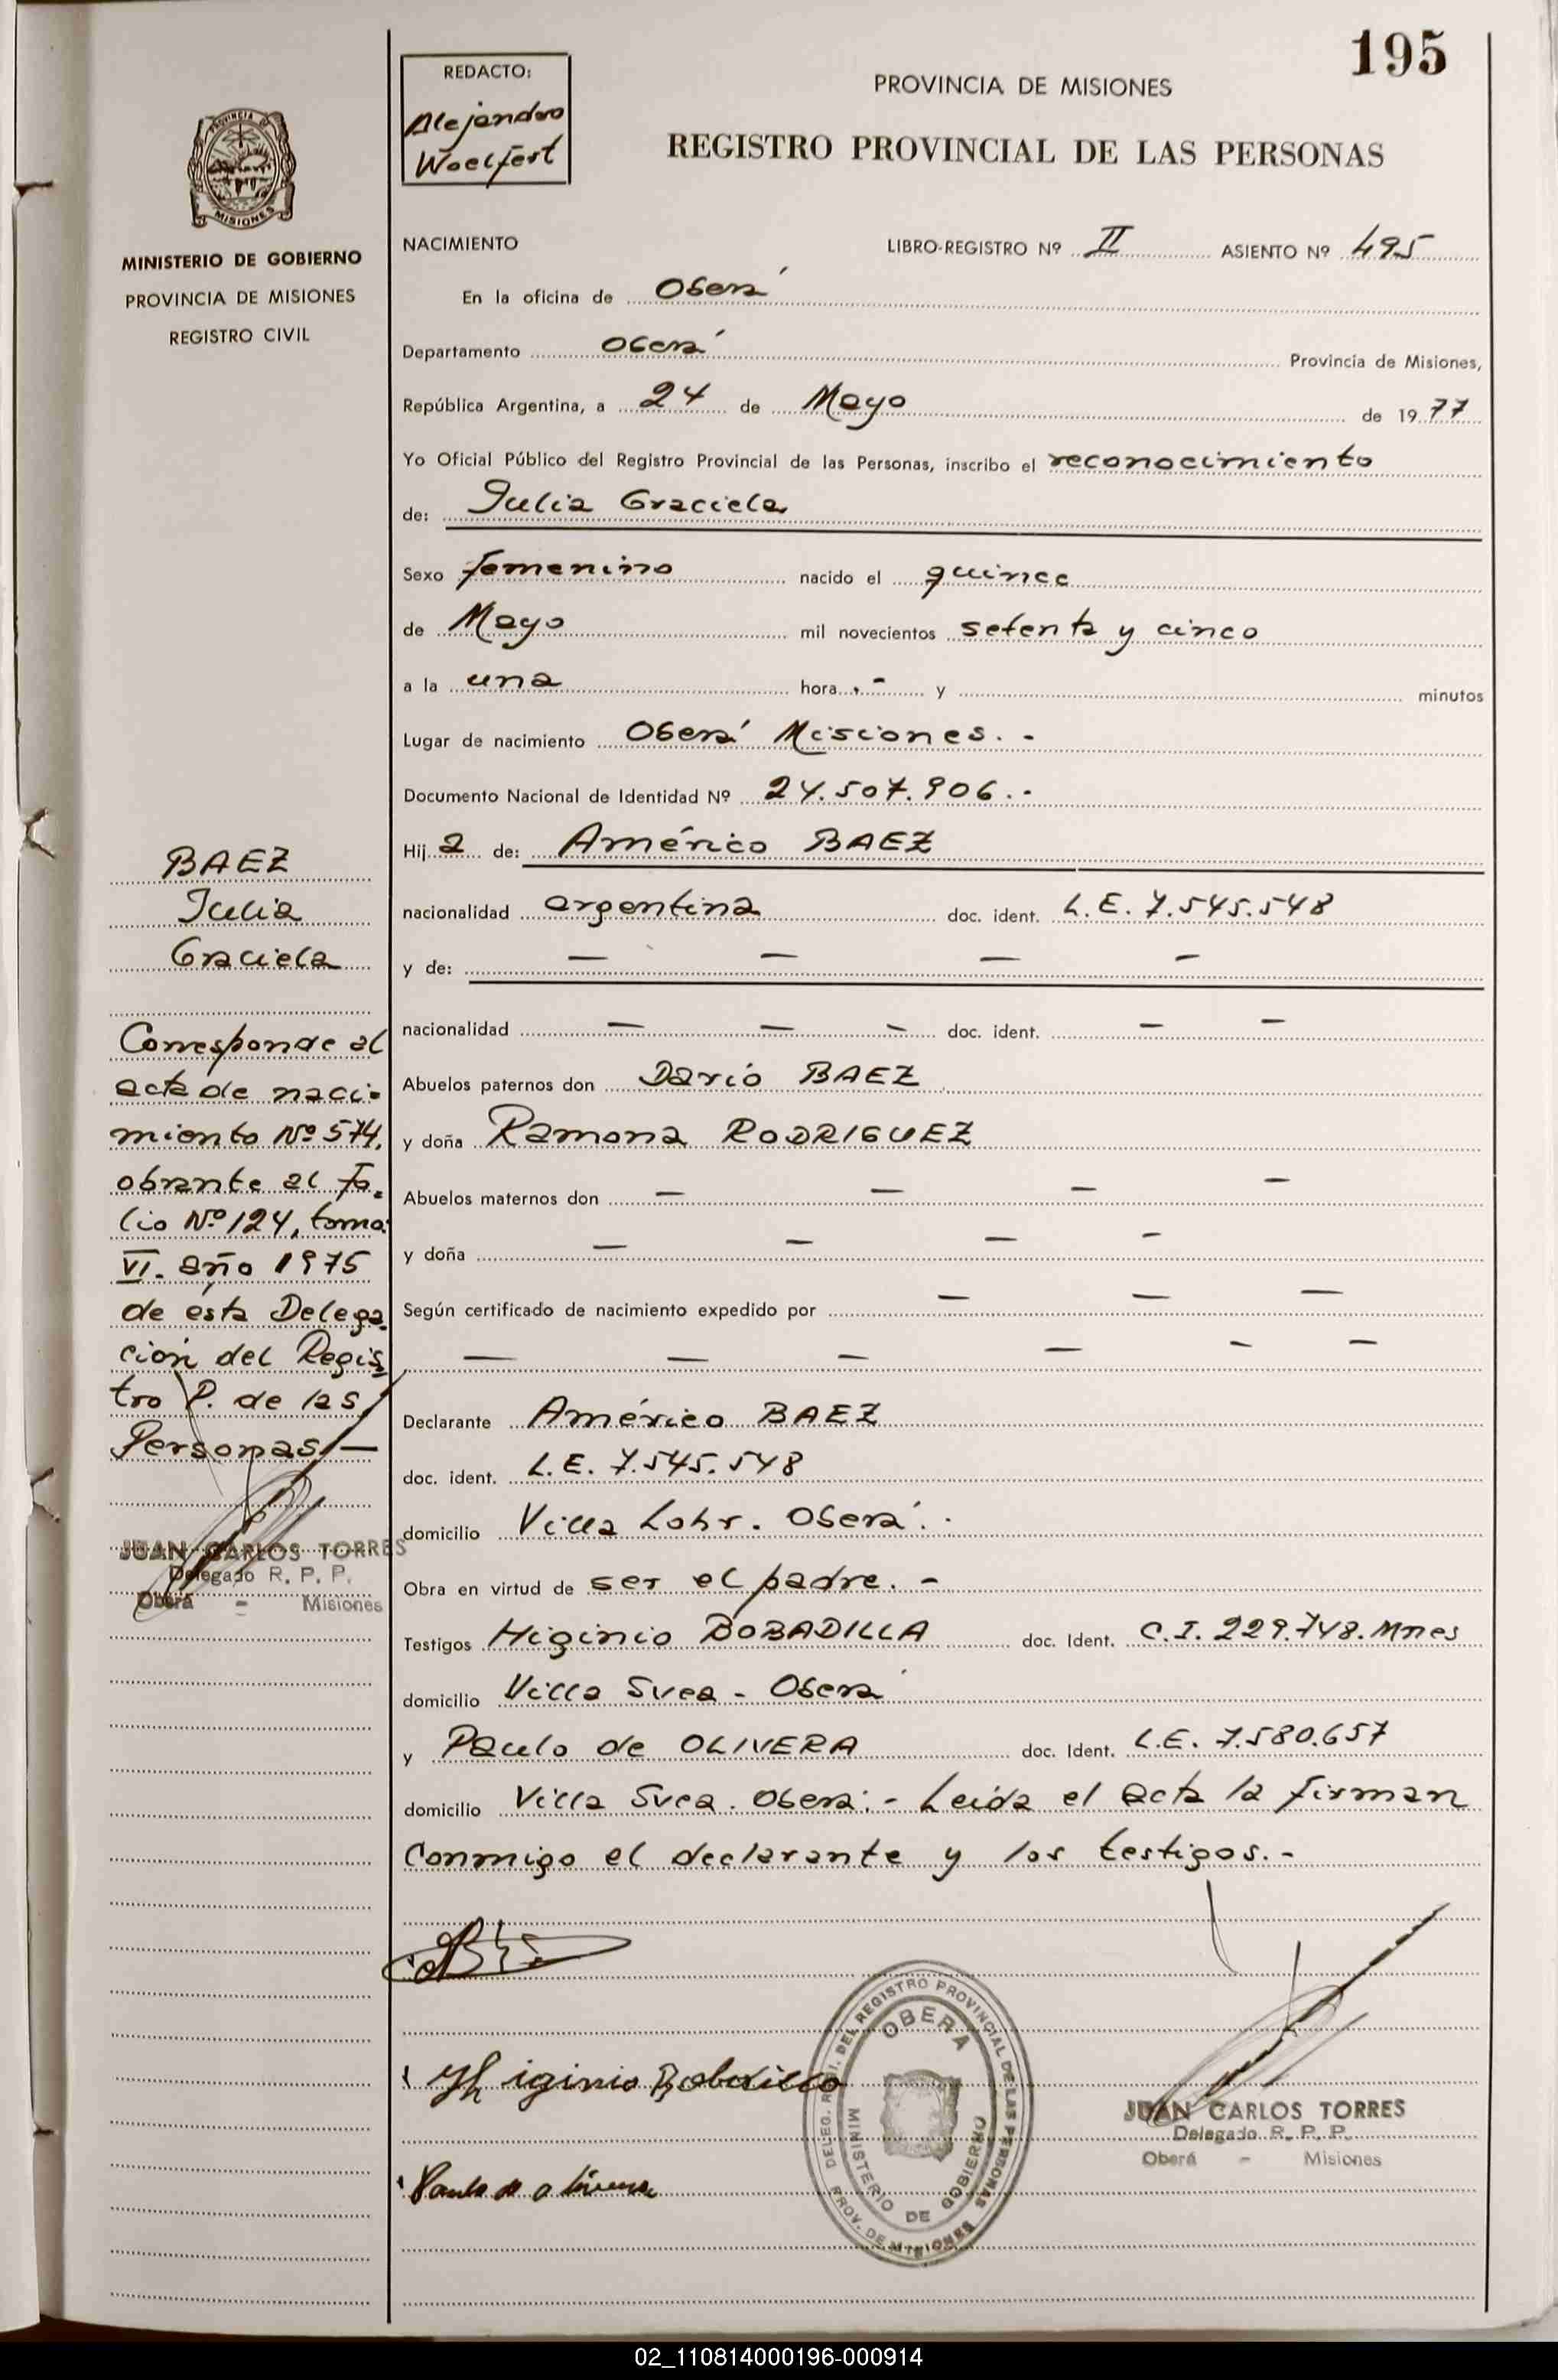 195
REDACTO:
Alejandro
Woelfert
PROVINCIA DE MISIONES
REGISTRO PROVINCIAL DE LAS PERSONAS
PROVINCIA DE
MISIONES
MINISTERIO DE GOBIERNO
PROVINCIA DE MISIONES
REGISTRO CIVIL
NACIMIENTO LIBRO-REGISTRO Nº II ASIENTO Nº 495
En la oficina de Oberá
Departamento Oberá Provincia de Misiones,
República Argentina, a 24 de Mayo de 1977
Yo Oficial Público del Registro Provincial de las Personas, inscribo el reconocimiento
de: Julia Graciela
Sexo femenino nacido el quince
de Mayo mil novecientos setenta y cinco
a la una hora .- y minutos
Lugar de nacimiento Oberá Misiones. -
Documento Nacional de Identidad Nº 24.507.906.-
Hija de: Américo BAEZ
nacionalidad argentina doc. ident. L.E. 7.545.548
y de: — — — —
nacionalidad — — - doc. ident. — —
Abuelos paternos don Darío BAEZ
y doña Ramona RODRIGUEZ
Abuelos maternos don — — — —
y doña — — — —
Según certificado de nacimiento expedido por — — —
— — — — - —
Declarante Américo BAEZ
doc. ident. L.E. 7.545.548
domicilio Villa Lohr. Oberá.
Obra en virtud de ser el padre. -
Testigos Higinio BOBADILLA doc. Ident. C.I. 229.748. Mnes
domicilio Villa Svea - Oberá
y Paulo de OLIVERA doc. Ident. L.E. 7.580.657
domicilio Villa Svea. Oberá.- Leída el acta la firman
conmigo el declarante y los testigos.-
BAEZ
Julia
Graciela
Corresponde al
acta de naci-
miento Nº 574,
obrante al fo-
lio Nº 124, tomo:
VI. año 1975
de ésta Delega-
ción del Regis-
tro P. de las
Personas.—
JUAN CARLOS TORRES
Delegado R. P. P.
Oberá - Misiones
Higinio Bobadilla
DELEG. DEL REGISTRO PROVINCIAL DE LAS PERSONAS
OBERA
MINISTERIO DE GOBIERNO
PROV. DE MISIONES
JUAN CARLOS TORRES
Delegado R. P. P.
Oberá - Misiones
02_110814000196-000914